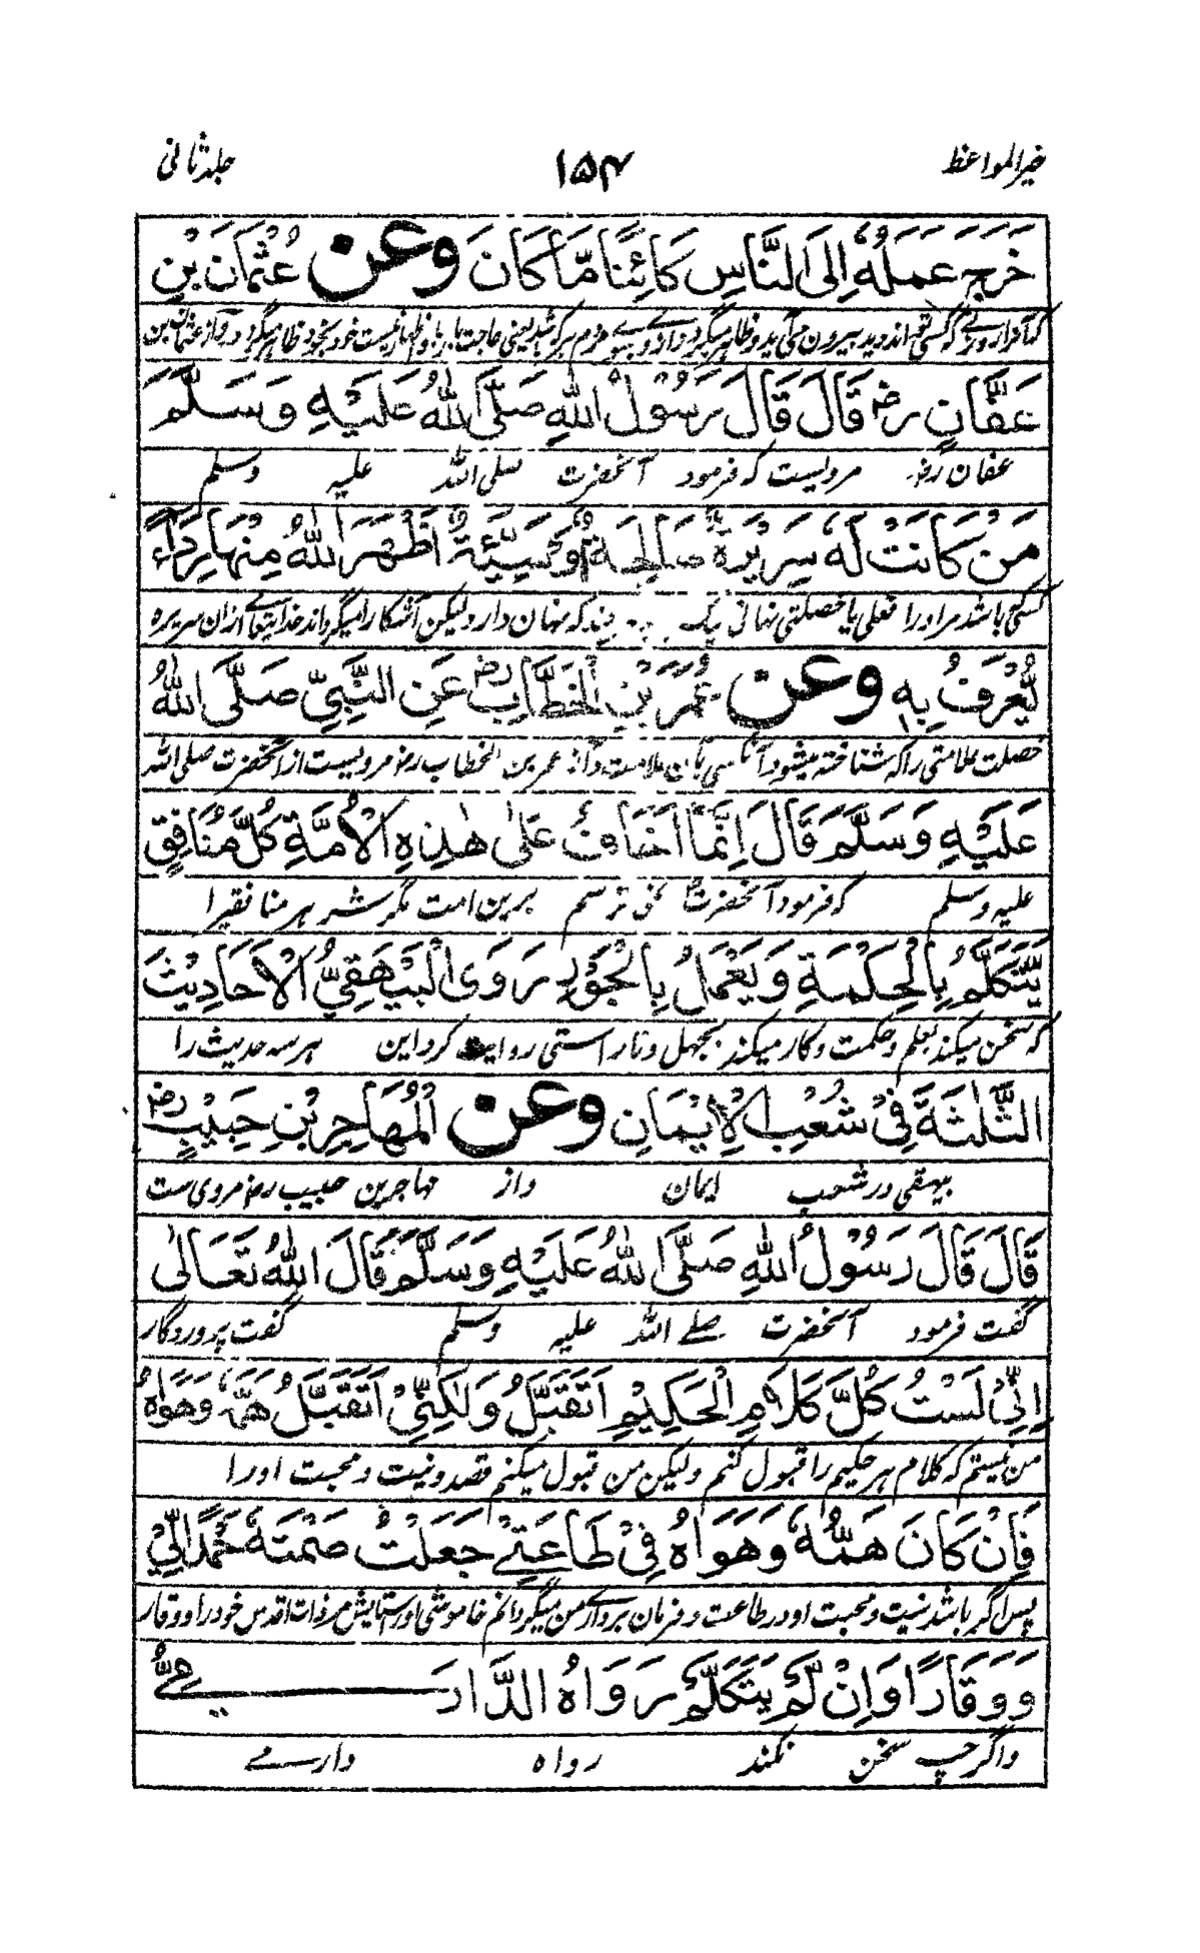 خیرالمواعظ ۱۵۴ جلد ثانی
خَرَجَ عَمَلُهٗ اِلَی النَّاسِ كَائِنًا مَّا كَانَ وعن عُثْمَانَ بْنِ
عَفَّانٍ رضہ قَالَ قَالَ رَسُوْلُ اللهِ صَلَّى اللهُ عَلَيْهِ وَسَلَّمَ
عفان رضہ مرویست که فرمود آنحضرت صلی الله علیه وسلم
مَنْ كَانَتْ لَهٗ سَرِيْرَةٌ صَالِحَةٌ اَوْ سَيِّئَةٌ اَظْهَرَ اللهُ مِنْهَا رِدَاءً
کسی باشد مراورا فعلی یا خصلتی نهانی نیک که نهان دارد لیکن آشکارا میگرداند خدایتعالے ازان سریره
يُّعْرَفُ بِهٖ وعن عُمَرَ بْنِ الْخَطَّابِ رضہ عَنِ النَّبِيِّ صَلَّى اللهُ
خصلت علامتی راکه شناخته میشود آنکس بآن علامت واز عمر بن الخطاب رضہ مرویست از آنحضرت صلی الله
عَلَيْهِ وَسَلَّمَ قَالَ اِنَّمَا اَخَافُ عَلٰى هٰذِهِ الْاُمَّةِ كُلَّ مُنَافِقٍ
علیه وسلم که فرمود آنحضرت نمی ترسم برین امت مگر شر هر منافقیرا
يَّتَكَلَّمُ بِالْحِكْمَةِ وَيَعْمَلُ بِالْجَوْرِ رَوَى الْبَيْهَقِيُّ الْاَحَادِيْثَ
که سخن میکند بعلم و حکمت و کار میکند بجهل و ناراستی روایت کرد این هر سه حدیث را
الثَّلٰثَةَ فِيْ شُعَبِ الْاِيْمَانِ وعن الْمُهَاجِرِ بْنِ حَبِيْبٍ رضہ
بیهقی در شعب ایمان واز مهاجر بن حبیب رضہ مروی ست
قَالَ قَالَ رَسُوْلُ اللهِ صَلَّى اللهُ عَلَيْهِ وَسَلَّمَ قَالَ اللهُ تَعَالٰى
گفت فرمود آنحضرت صلے الله علیه وسلم گفت پروردگار
اِنِّيْ لَسْتُ كُلَّ كَلَامِ الْحَكِيْمِ اَتَقَبَّلُ وَلٰكِنِّيْ اَتَقَبَّلُ هَمَّهٗ وَهَوَاهُ
من نیستم که کلام هر حکیم را قبول کنم ولیکن من قبول میکنم قصد و نیت و محبت اورا
فَاِنْ كَانَ هَمُّهٗ وَهَوَاهُ فِيْ طَاعَتِيْ جَعَلْتُ صَمْتَهٗ حَمْدًا لِّيْ
پس اگر باشد نیت و محبت او در طاعت و فرمان بردارے من میگردانم خاموشی اورا ستایش مر ذات اقدس خود را و وقار
وَوَقَارًا وَاِنْ لَّمْ يَتَكَلَّمْ رَوَاهُ الدَّارَمِيُّ
واگرچه سخن نکند رواه دارمے